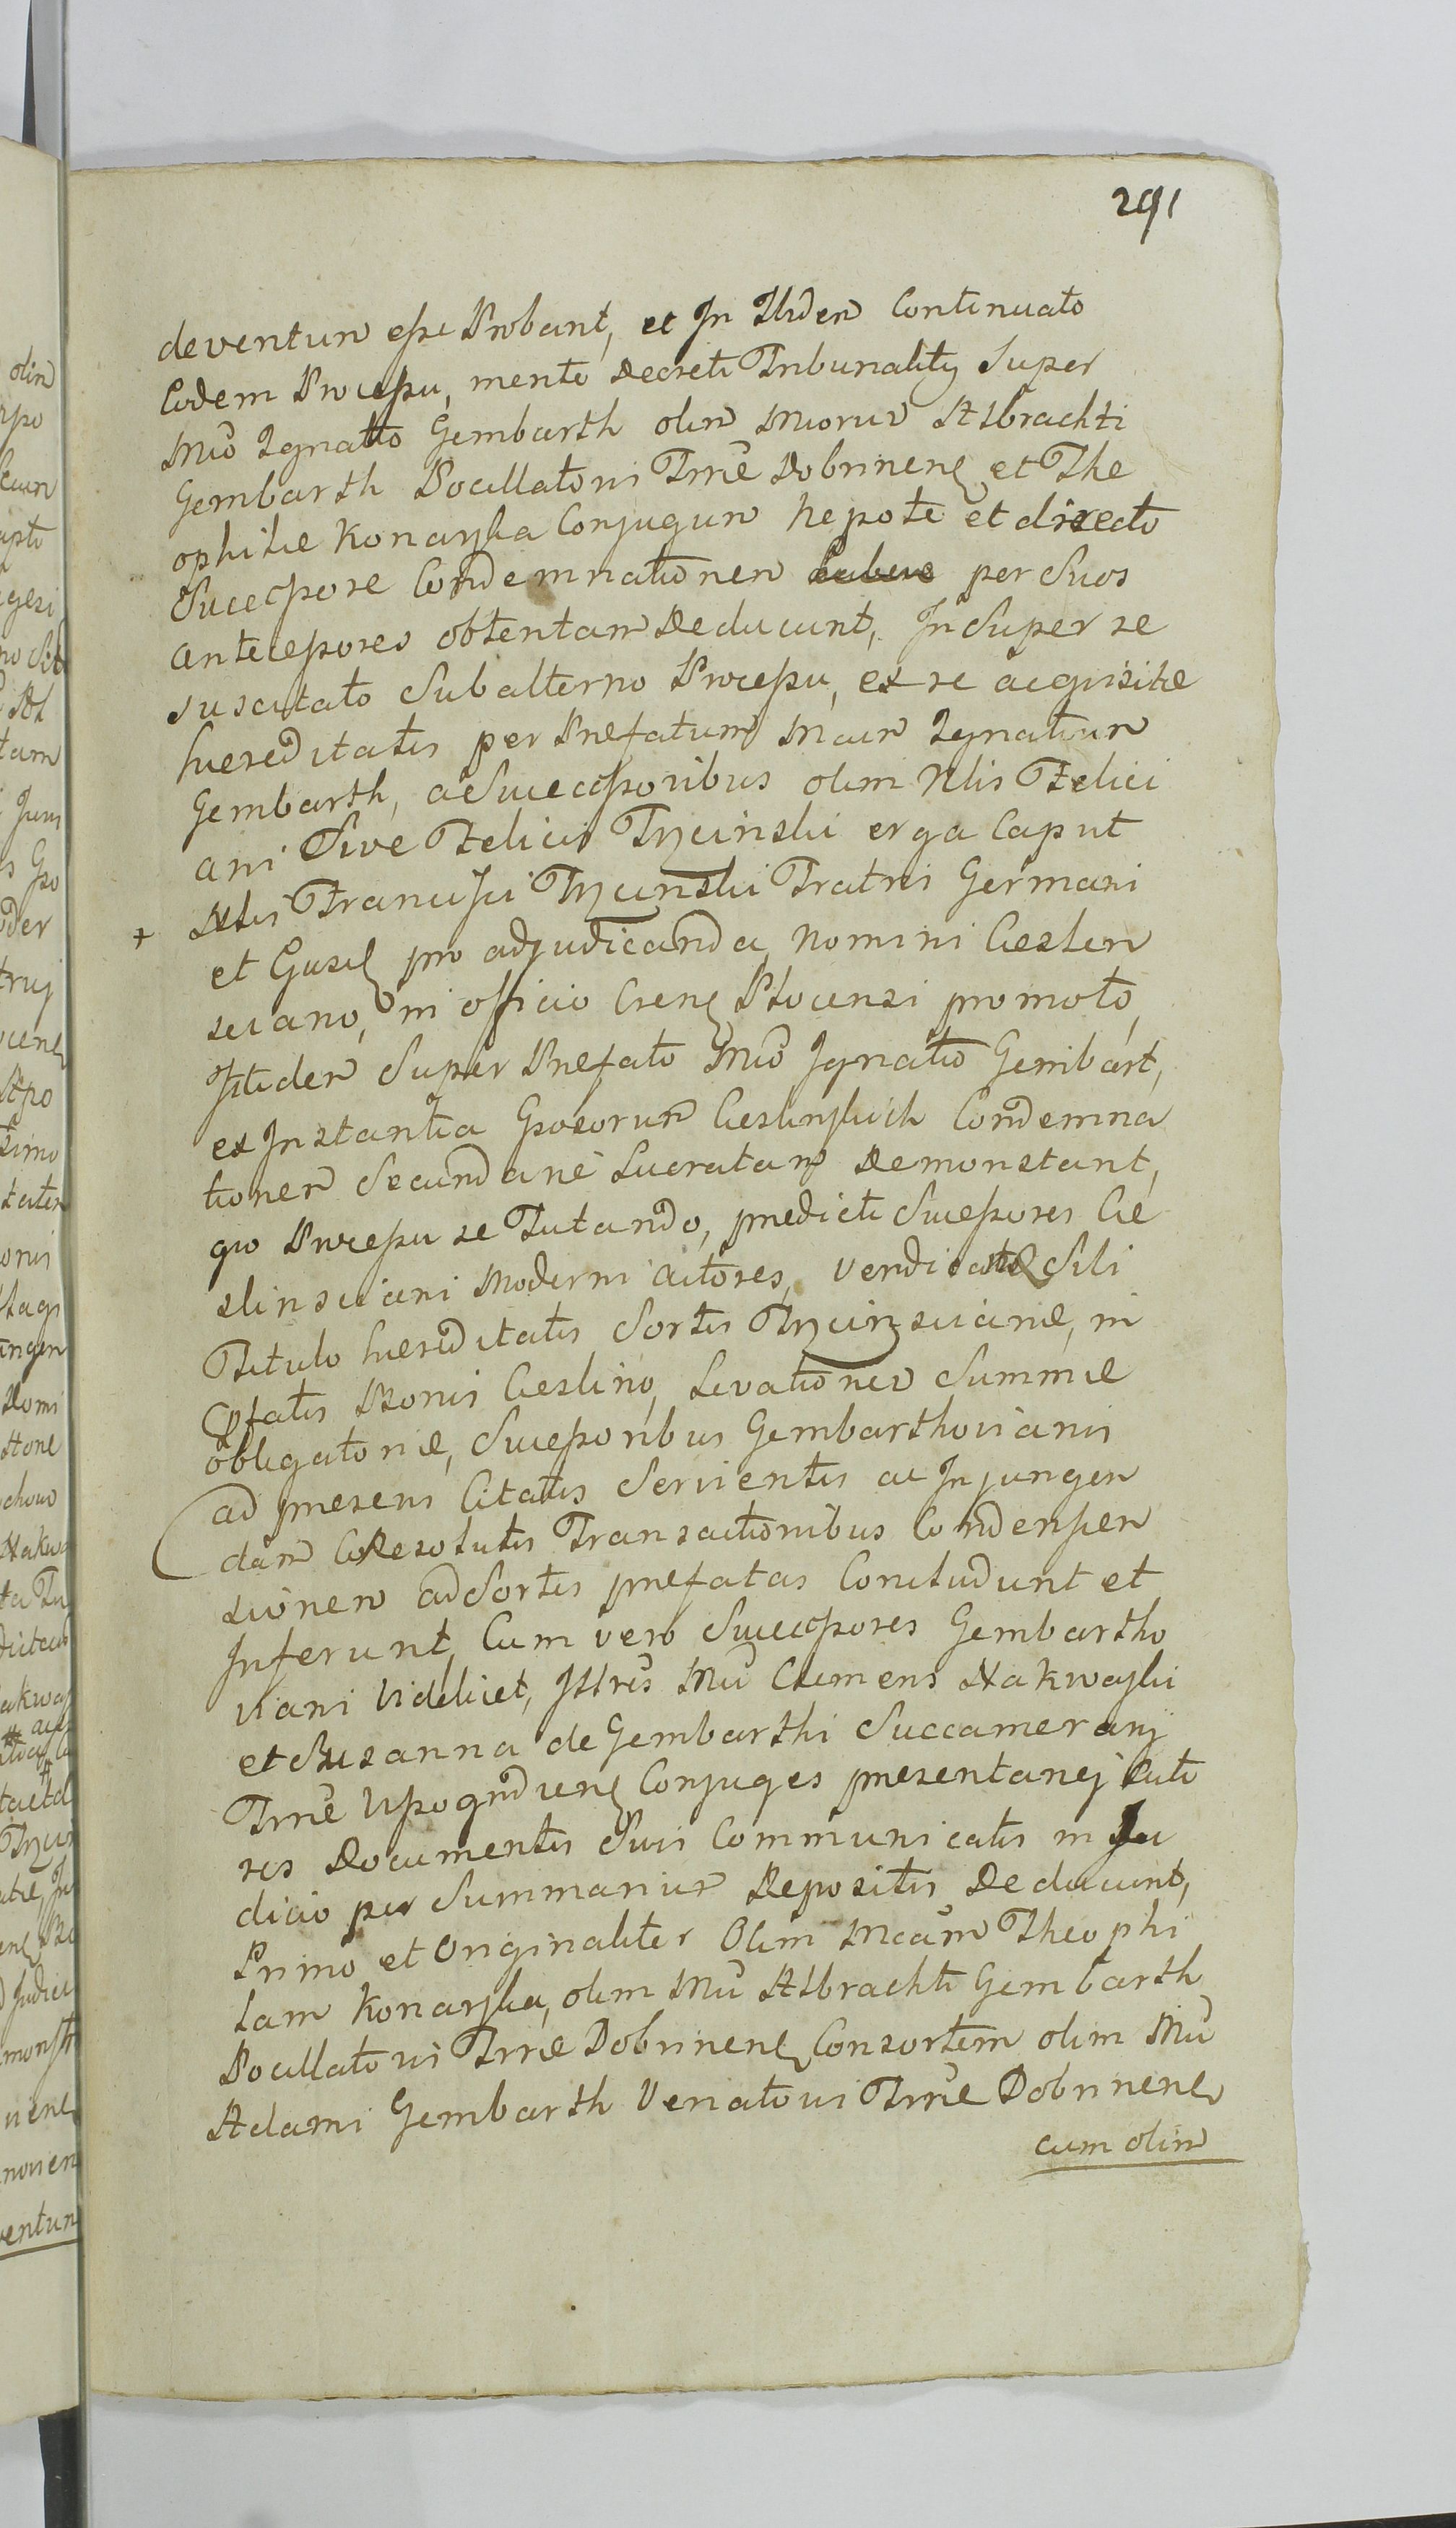 291
deventum esse Probant, et In Ibidem Continuato
Eodem Processu, mente Decreti Tribunalitij Super
Mco Ignatio Gembarth olim Mcorum Albrachti
Gembarth Pocillatoris Trrae Dobrinens et The
ophilae Konarska Conjugum Nepote et directo
Successore Condemnationem per Suos
antecessores obtentam Deducunt, In Super se
suscitato Subalterno Processu, ex re acquisitae
haereditatis per Praefatum Mcum Ignatium
Gembarth, a Successoribus olim Nlis Felici
ani Sive Felicis Trzcinski erga Caput
+ Nlis Francisci Trzcinski Fratris Germani
et Gusil pro adjudicanda Nomini Cieslin
sciano, in officio Crens Plocensi promoto,
Itidem Super Praefato Mco Ignatio Gembart,
ex Instantia Gsosorum Cieslinskich Condemna
tionem Secundarie Lucratam Demonstant,
quo Processu se Tutando, praedicti Successores Cie
slinsciani Moderni actores, Vendicatae Sibi
Titulo haereditatis Sortis Trzcinscianae, in
Cptatis Bonis Cieslino, Levationem Summae
obligatoriae, Successoribus Gembarthovianis
ad praesens Citatis Servientis ac Injungen
dam Exresolutis Transactionibus Condensen
sionem ad Sortis praefatas Concludunt et
Inferunt, Cum vero Successores Gembartho
viani Videlicet, Illris Mci Clemens Nakwaski
et Susanna de Gembarthi Succamerarij
Trrae Vyssogrdiens Conjuges praesentanej Acto
res Documentis Suis Communicatis in Iu
dicio per Summarium Repositis Deducunt,
Primo et Originaliter Olim Mcam Theophi
lam Konarska, olim Mci Albrachti Gembarth
Pocillatoris Trrae Dobrinens Consortem olim Mci
Adami Gembarth Venatoris Trrae Dobrinens
cum olim